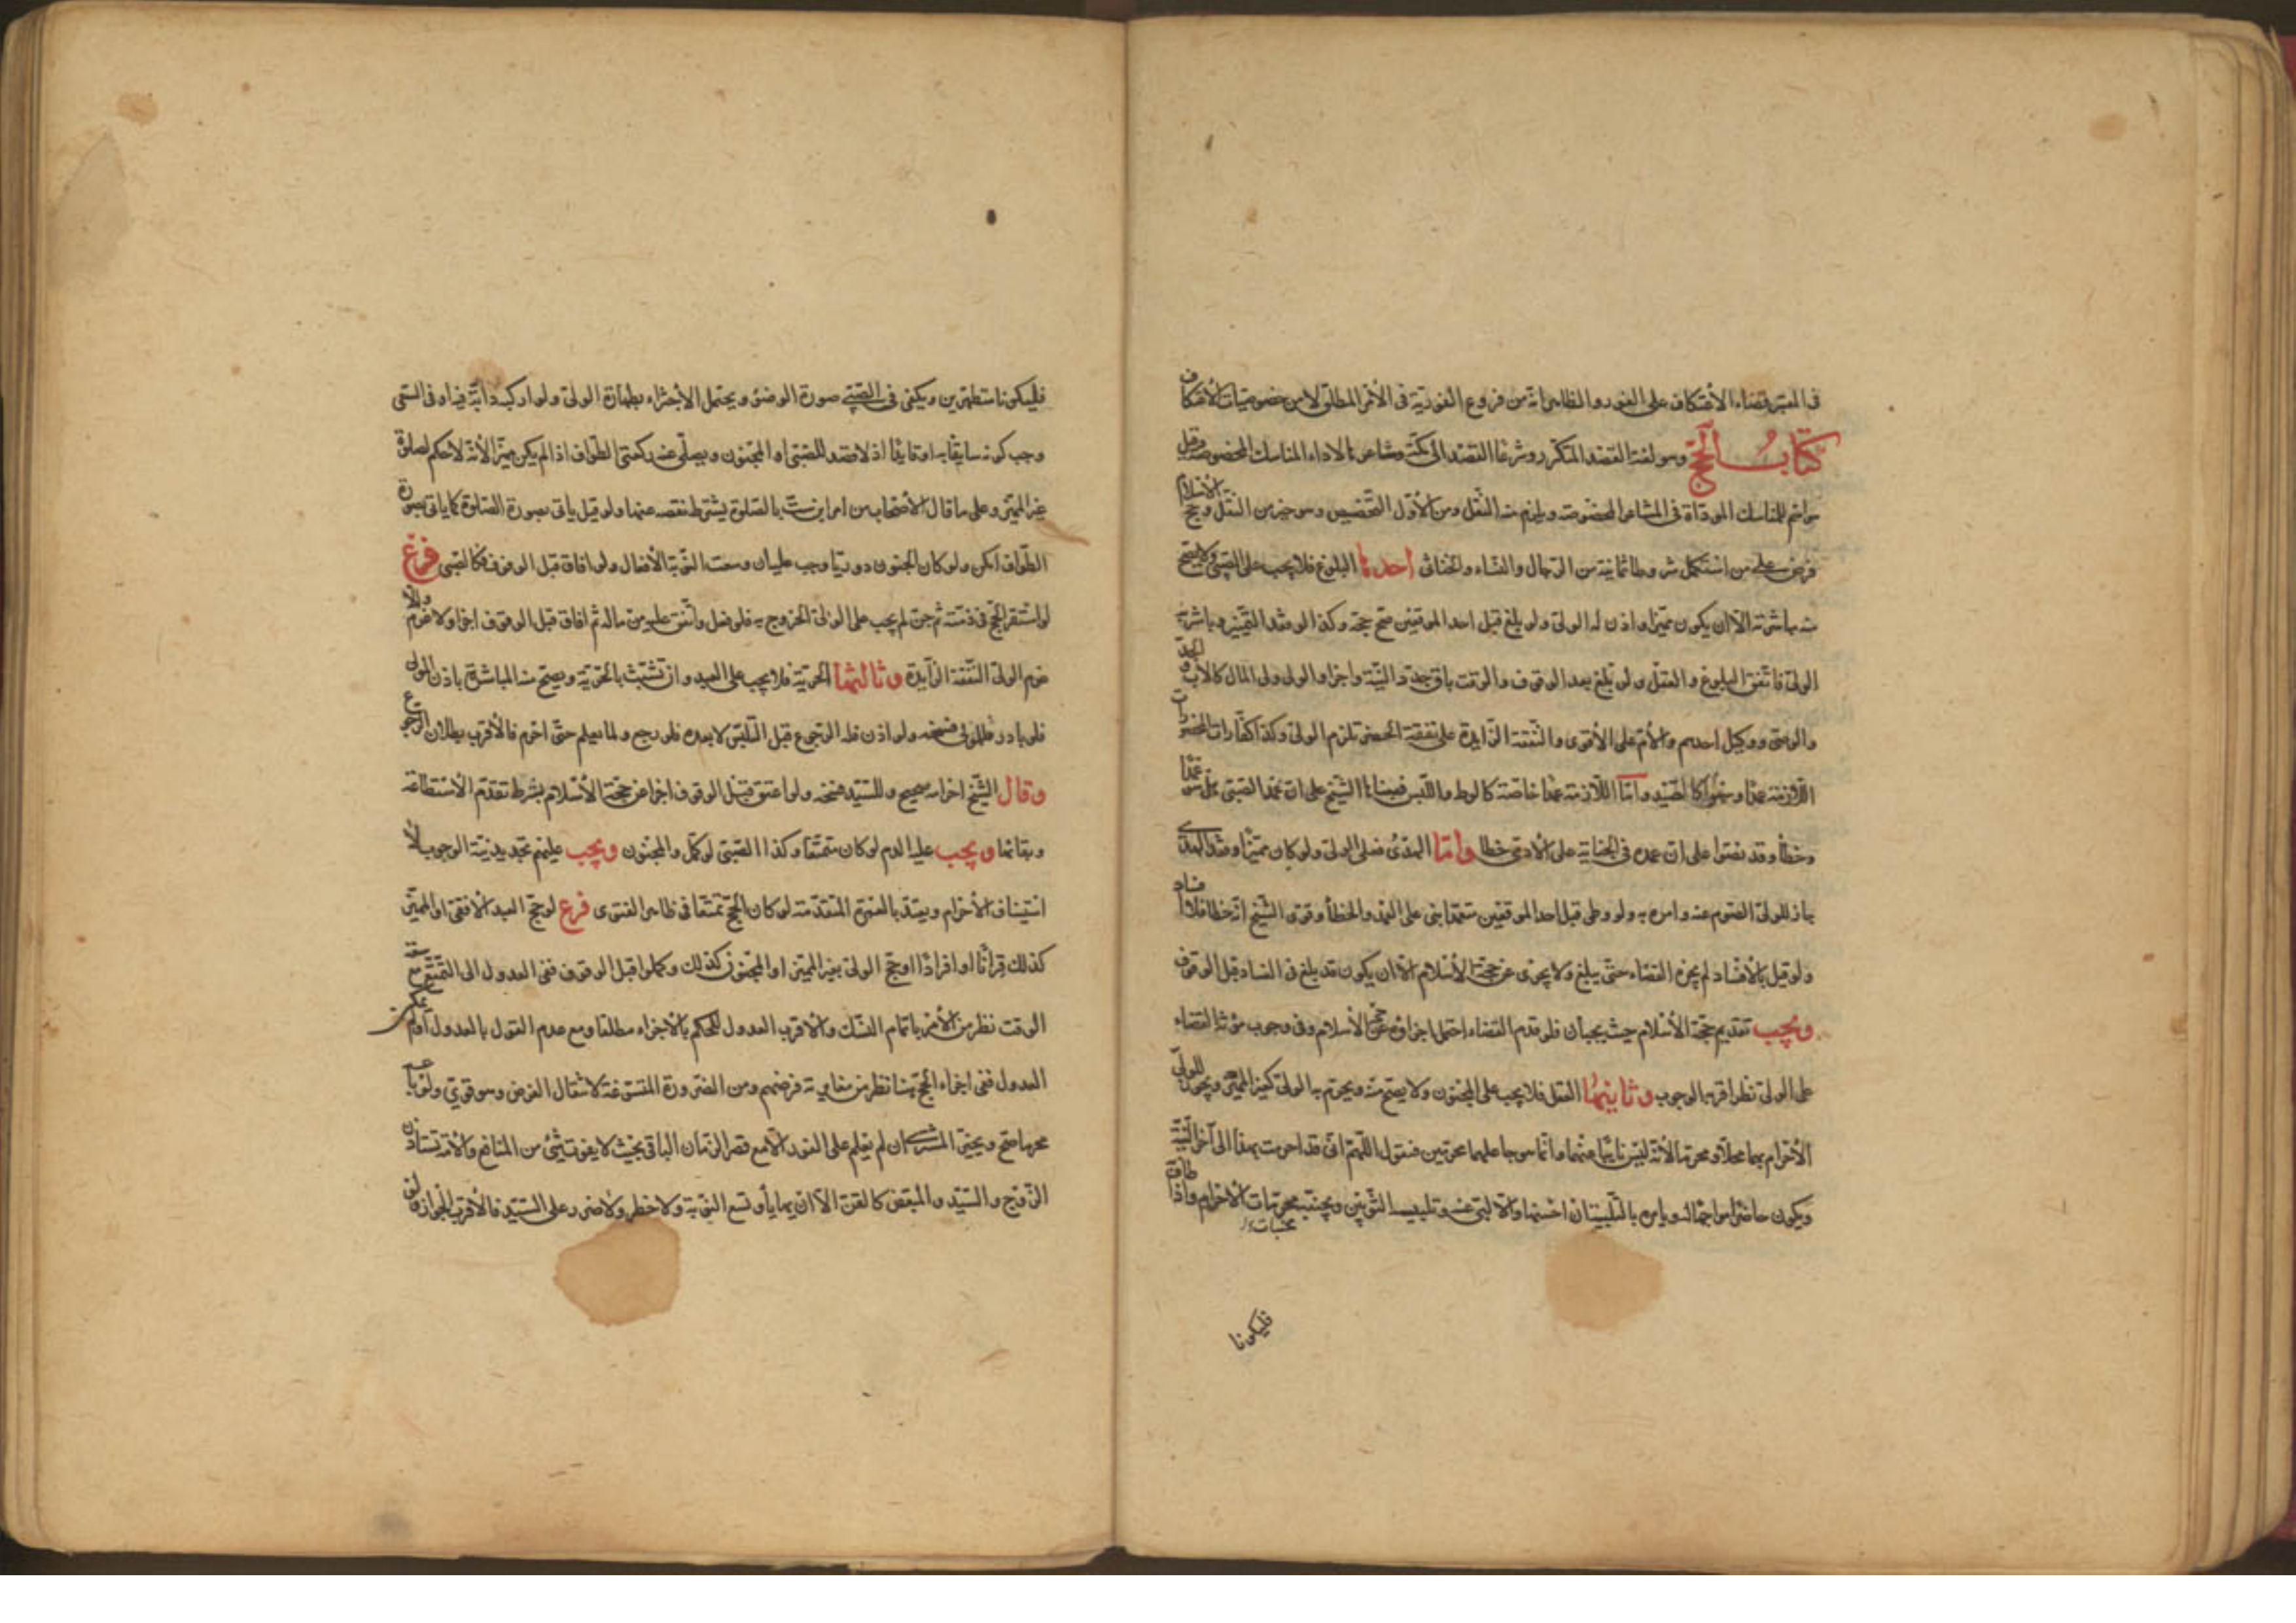 في المعتبر قضاء الاعتكاف على الفور والظاهر انه من فروع الفورية في الأمر المطلق لا من خصوصيات الاعتكاف
كتاب الحجّ وهو لغة القصد المتكرر وشرعا القصد الى مكة ومشاعرها لاداء المناسك المخصوصة وقيل
هو اسم للمناسك المؤداة في المشاعر المخصوصة ويلزم منه النقل ومن الأول التخصيص وهو خير من النقل وحج الاسلام
فرض على من استكمل شروطا ثمانية من الرجال والنساء والخناثى احدها البلوغ فلا يجب على الصبي ولا يصح
منه مباشرته الا ان يكون مميزا واذن له الولي ولو بلغ قبل احد الموقفين صح حجه وكذا لو فقد التميز وباشر به
الولي فاتفق البلوغ والعقل ولو بلغ بعد الوقوف والوقت باق جدد النية واجزا والولي ولي المال كالاب والجد
والوصي ووكيل احدهم والام على الأقوى والنفقة الزايدة على نفقة الحضر تلزم الولي وكذا كفارات المحظورات
اللازمة عمدا وسهوا كالصيد واما اللازمة عمدا خاصة كالوطء واللبس فبناها الشيخ على ان عمد الصبي هل هو عمد
وخطأ وقد نصوا على ان عمده في الجناية على الآدمي خطا واما الهدي فعلى الولي ولو كان مميزا وفقد الهدي
جاز للولي الصوم عنه وامره به ولو وطى قبل احد الموقفين متعمدا بني على العمد والخطأ وقوى الشيخ انه خطا فلا افساد
ولو قيل بالافساد لم يجزه القضاء حتى يبلغ ولا يجزى عن حجة الأسلام الا ان يكون قد بلغ في الفساد قبل الوقوف
ويجب تقديم حجة الأسلام حيث يجبان فلو قدم القضاء احتمل اجزاؤه عن حجة الأسلام وفي وجوب مؤنة القضاء
على الولي نظر اقربه الوجوب وثانيها العقل فلا يجب على المجنون ولا يصح منه ويحرم به الولي كغير المميز ويجوز للولي
الأحرام بهما محلا ومحرما لأنه ليس نائبا عنهما وانما هو جاعلهما محرمين فنقول اللهم اني قد احرمت بهذا الى آخر النية
ويكون حاضرا مواجها له ويامره بالتلبية ان احسنها والا لبى عنه ويلبسه الثوبين ويجنبه محرمات الاحرام واذا طاف به
فليكونا
فليكونا متطهرين ويكفي في الصبي صورة الوضوء ويحتمل الأجتزاء بطهارة الولي ولو اركبه دابة فيه او في السعي
وجب كونه سايقا به او قايدا اذ لا قصد للصبي او المجنون ويصلى عنه ركعتي الطواف اذا لم يكن مميزا لأنه لا حكم لصلوة
غير المميز وعلى ما قال الأصحاب من امر ابن ست بالصلوة يشترط نقصه عنها ولو قيل ياتي بصورة الصلوة كما ياتي بصورة
الطواف امكن ولو كان الجنون دوريا وجب عليه ان وسعت النوبة الأفعال ولو افاق قبل الوقوف فكالصبي فرع
لو استقر الحج في ذمته ثم جن لم يجب على الولي الخروج به فلو فعل وانفق عليه من ماله ثم افاق قبل الوقوف اجزا ولا غرم والا
غرم الولي النفقة الزايدة وثالثها الحرية فلا يجب على العبد وان تشبث بالحرية ويصح منه المباشرة باذن المولى
فلو بادر فللمولى فسخه ولو اذن فله الرجوع قبل التلبس لا بعده فلو رجع ولما يعلم حتى احرم فالأقرب بطلان الرجوع
وقال الشيخ احرامه صحيح وللسيد فسخه ولو اعتق قبل الوقوف اجزا عن حجة الأسلام بشرط تقدم الأستطاعة
وبقائها ويجب عليه الدم لو كان متمتعا وكذا الصبي لو كمل والمجنون ويجب عليهم تجديد نية الوجوب لا
استيناف الأحرام ويعتد بالعمرة المتقدمة لو كان الحج تمتعا في ظاهر الفتوى فرع لو حج العبد الافقي او المميز
كذلك قرانا او افرادا او حج الولي بغير المميز او المجنون كذلك وكملوا قبل الوقوف ففي العدول الى التمتع مع سعة
الوقت نظر من الأمر باتمام النسك والاقرب العدول للحكم بالأجزاء مطلقا ومع عدم القول بالعدول او لم يمكن
العدول ففي اجزاء الحج هنا نظر من مغايرته فرضهم ومن الضرورة المسوغة لانتقال الفرض وهو قوي ولو باعه
محرما صح ويخير المشتري ان لم يعلم على الفور الا مع قصر الزمان الباقي بحيث لا يفوت شيئ من المنافع والأمة تستاذن
الزوج والسيد والمبعض كالقن الا ان يهايأ وتسع النوبة ولا خطر ولا ضرر على السيد فالأقرب الجواز